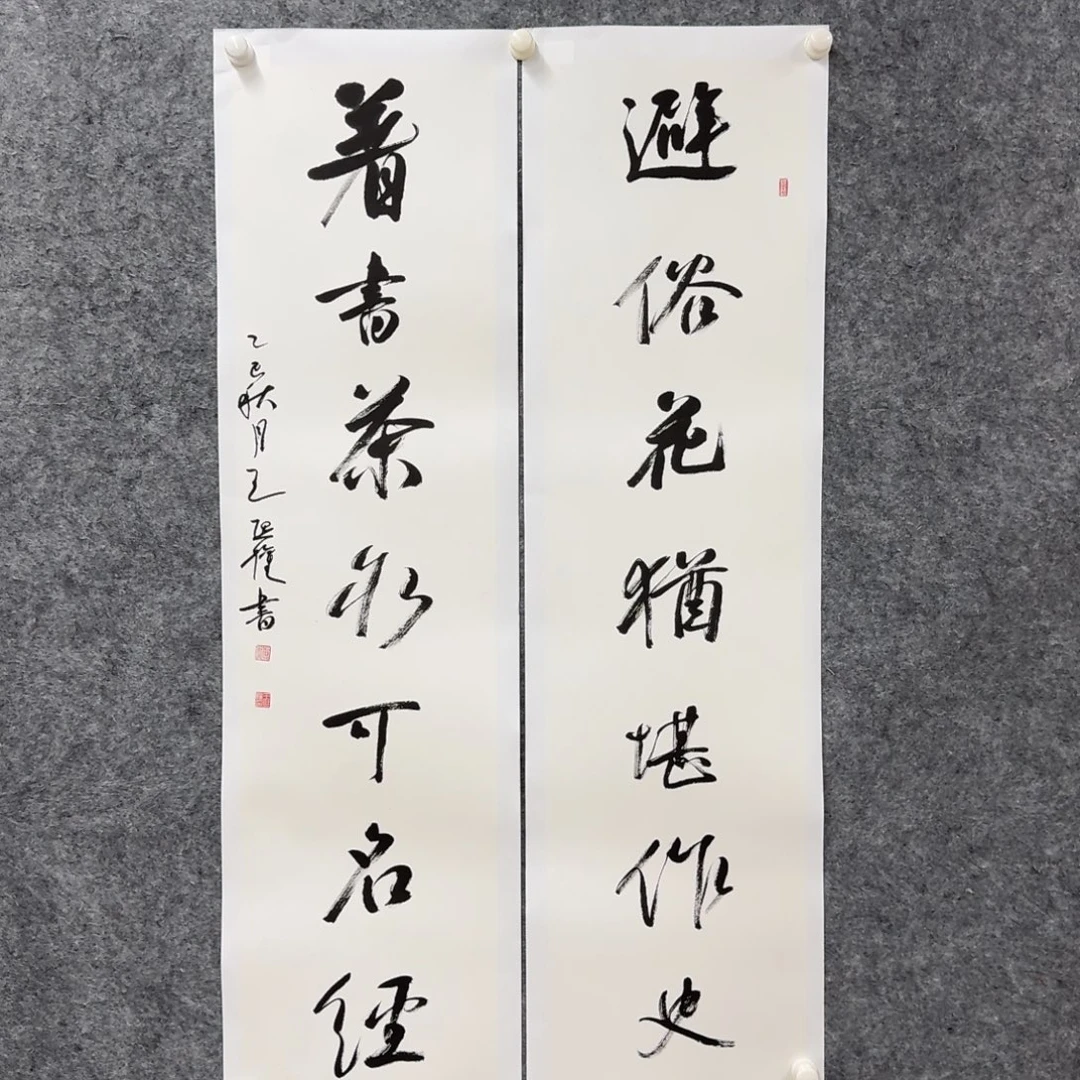 避俗花猶堪作史
著書茶亦可名經
乙巳秋月王書